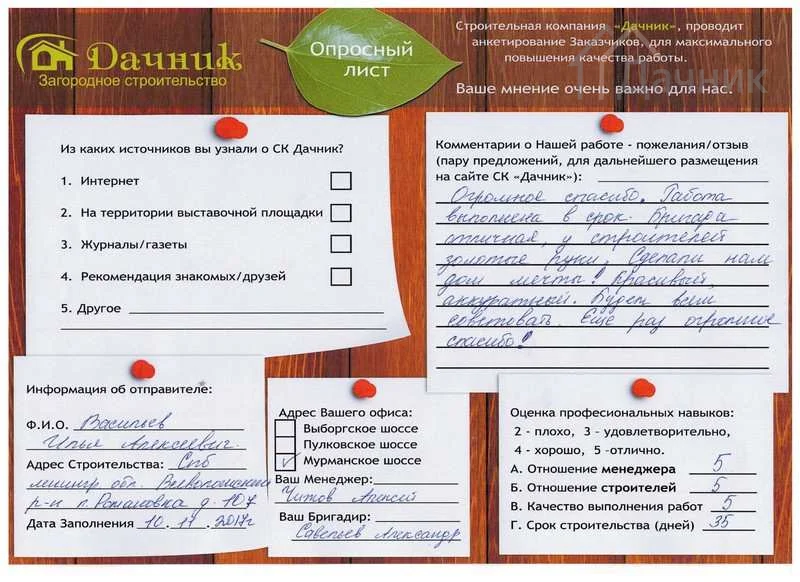 Дачник
Загородное строительство
Опросный
лист
Строительная компания «Дачник», проводит
анкетирование Заказчиков, для максимального
повышения качества работы.
Ваше мнение очень важно для нас.
Дачник
Из каких источников вы узнали о СК Дачник?
1. Интернет
2. На территории выставочной площадки
3. Журналы/газеты
4. Рекомендация знакомых/друзей
5. Другое
Комментарии о Нашей работе - пожелания/отзыв
(пару предложений, для дальнейшего размещения
на сайте СК «Дачник»):
Огромное спасибо. Работа
выполнена в срок. Бригада
отличная, у строителей
золотые руки. Сделали нам
дом мечты! Красивый,
аккуратный. Будем всем
советовать. Еще раз огромное
спасибо!
Информация об отправителе:
Ф.И.О. Васильев
Илья Алексеевич.
Адрес Строительства: Спб
ленингр обл. Всеволожский
р-н п. Романовка д. 107
Дата Заполнения 10. 11. 2017г
Адрес Вашего офиса:
Выборгское шоссе
Пулковское шоссе
Мурманское шоссе
Ваш Менеджер:
Читов Алексей
Ваш Бригадир:
Савельев Александр
Оценка професиональных навыков:
2 - плохо, 3 - удовлетворительно,
4 - хорошо, 5 -отлично.
А. Отношение менеджера 5
Б. Отношение строителей 5
В. Качество выполнения работ 5
Г. Срок строительства (дней) 35